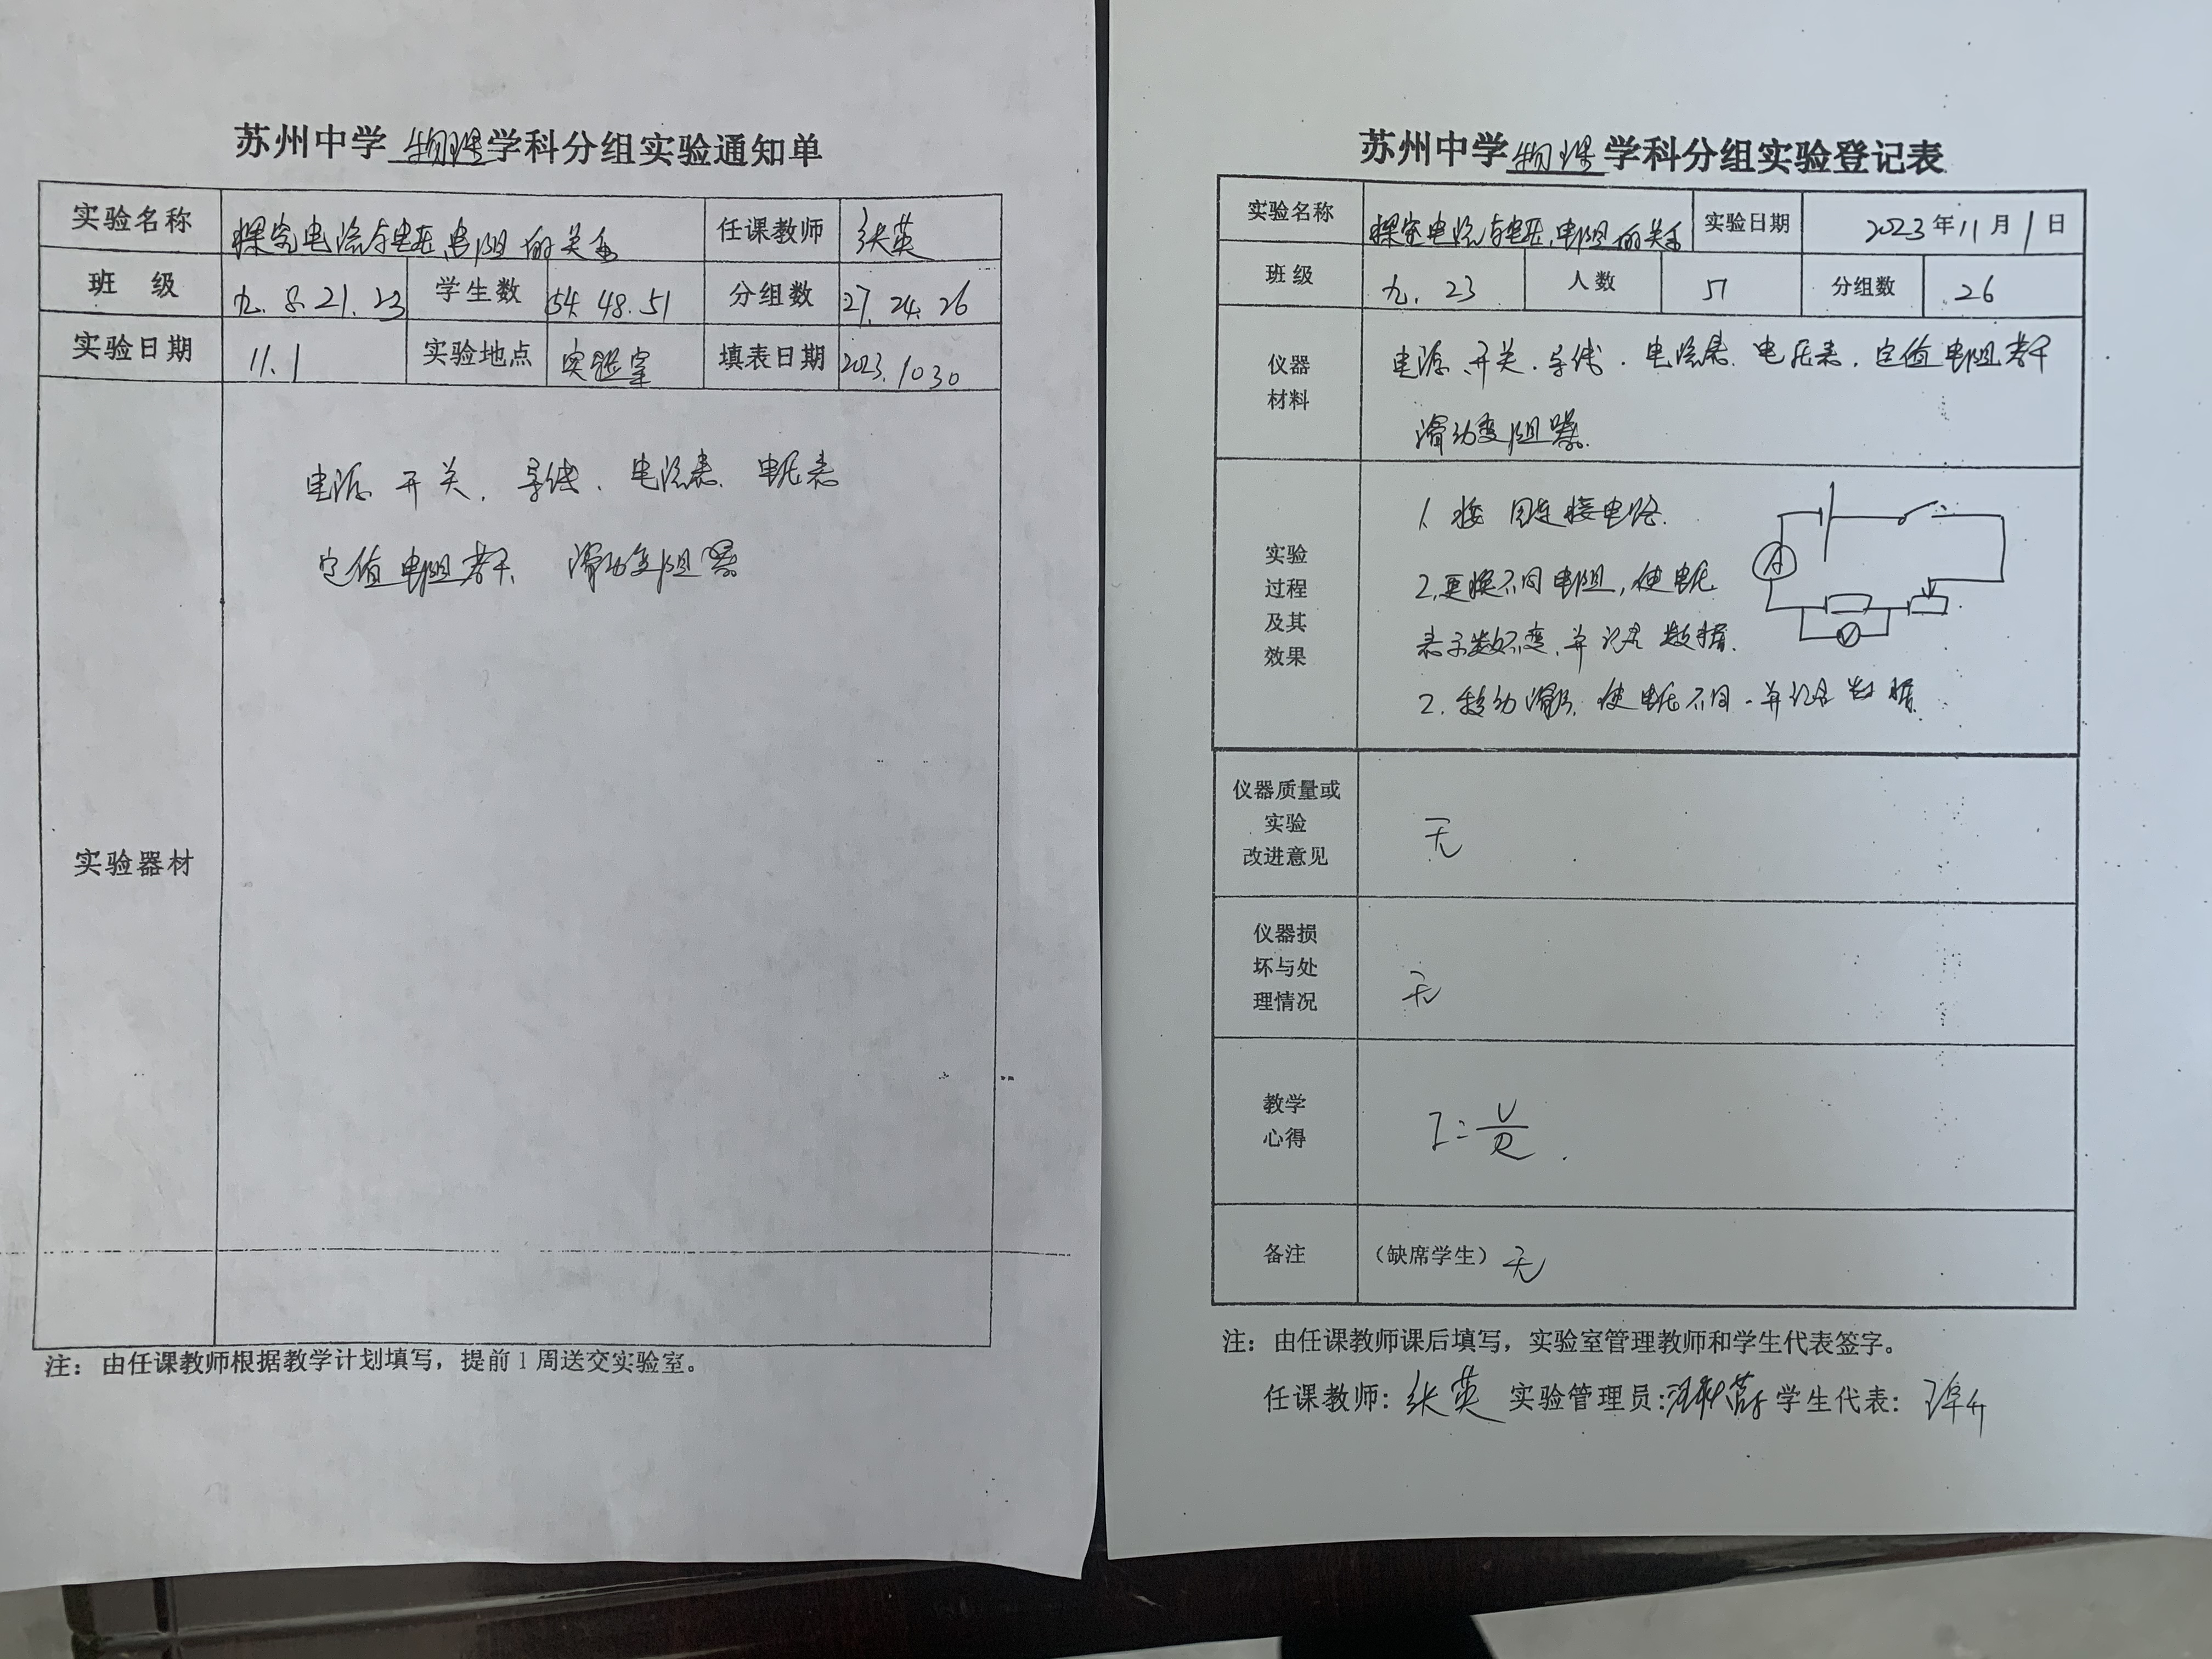 苏州中学物理学科分组实验通知单
实验名称 探究电流与电压、电阻的关系 任课教师 张英
班 级 九.8.21.23 学生数 54.48.51 分组数 27.24.26
实验日期 11.1 实验地点 实验室 填表日期 2023.10 30
实验器材
电源 开关、导线、电流表、电压表
定值电阻若干、滑动变阻器
注：由任课教师根据教学计划填写，提前1周送交实验室。
苏州中学物理学科分组实验登记表
实验名称 探究电流与电压、电阻的关系 实验日期 2023年11月1日
班级 九.23 人数 51 分组数 26
仪器
材料
电源、开关、导线、电流表、电压表、定值电阻若干
滑动变阻器.
实验
过程
及其
效果
1. 按图连接电路.
2. 更换不同电阻，使电压
表示数不变，并记录数据.
2. 移动滑片，使电压不同，并记录数据.
A
V
仪器质量或
实验
改进意见
无
仪器损
坏与处
理情况
无
教学
心得
I=U/R.
备注 （缺席学生）无
注：由任课教师课后填写，实验室管理教师和学生代表签字。
任课教师：张英 实验管理员： 学生代表：